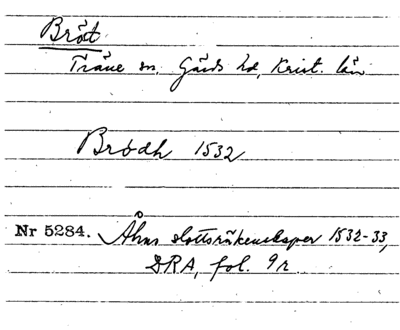 Bröd
Träne sn. Gärds hd, Krist. län
Brödh 1532
Nr 5284. Åhus slottsräkenskaper 1532-33,
DRA, fol. 9r.